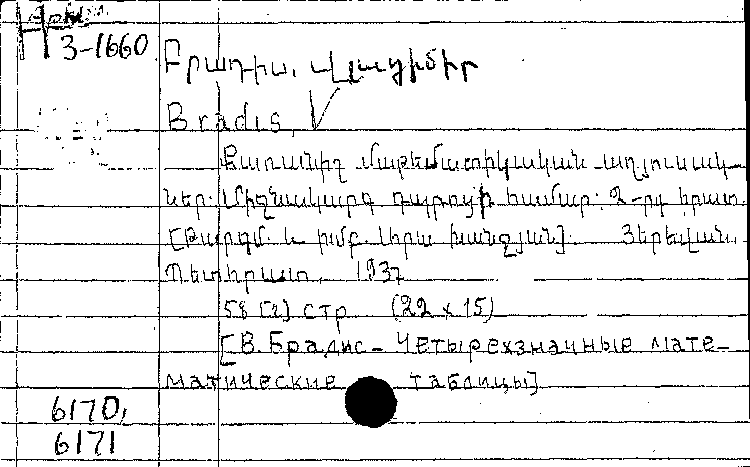 Յ-1660
Բրադիս, Վլադիմիր
Bradis, V
Քառանիշ մաթեմատիկական աղյուսակ-
ներ: Միջնակարգ դպրոցի համար: 2-րդ հրատ.
[Թարգմ. և խմբ. Արա Խանջյան]. Յերեվան,
Պետհրատ, 1937
58 [2] стр (22 x 15)
[В. Брадис - Четырехзначные мате-
матические таблицы]
6170,
6171